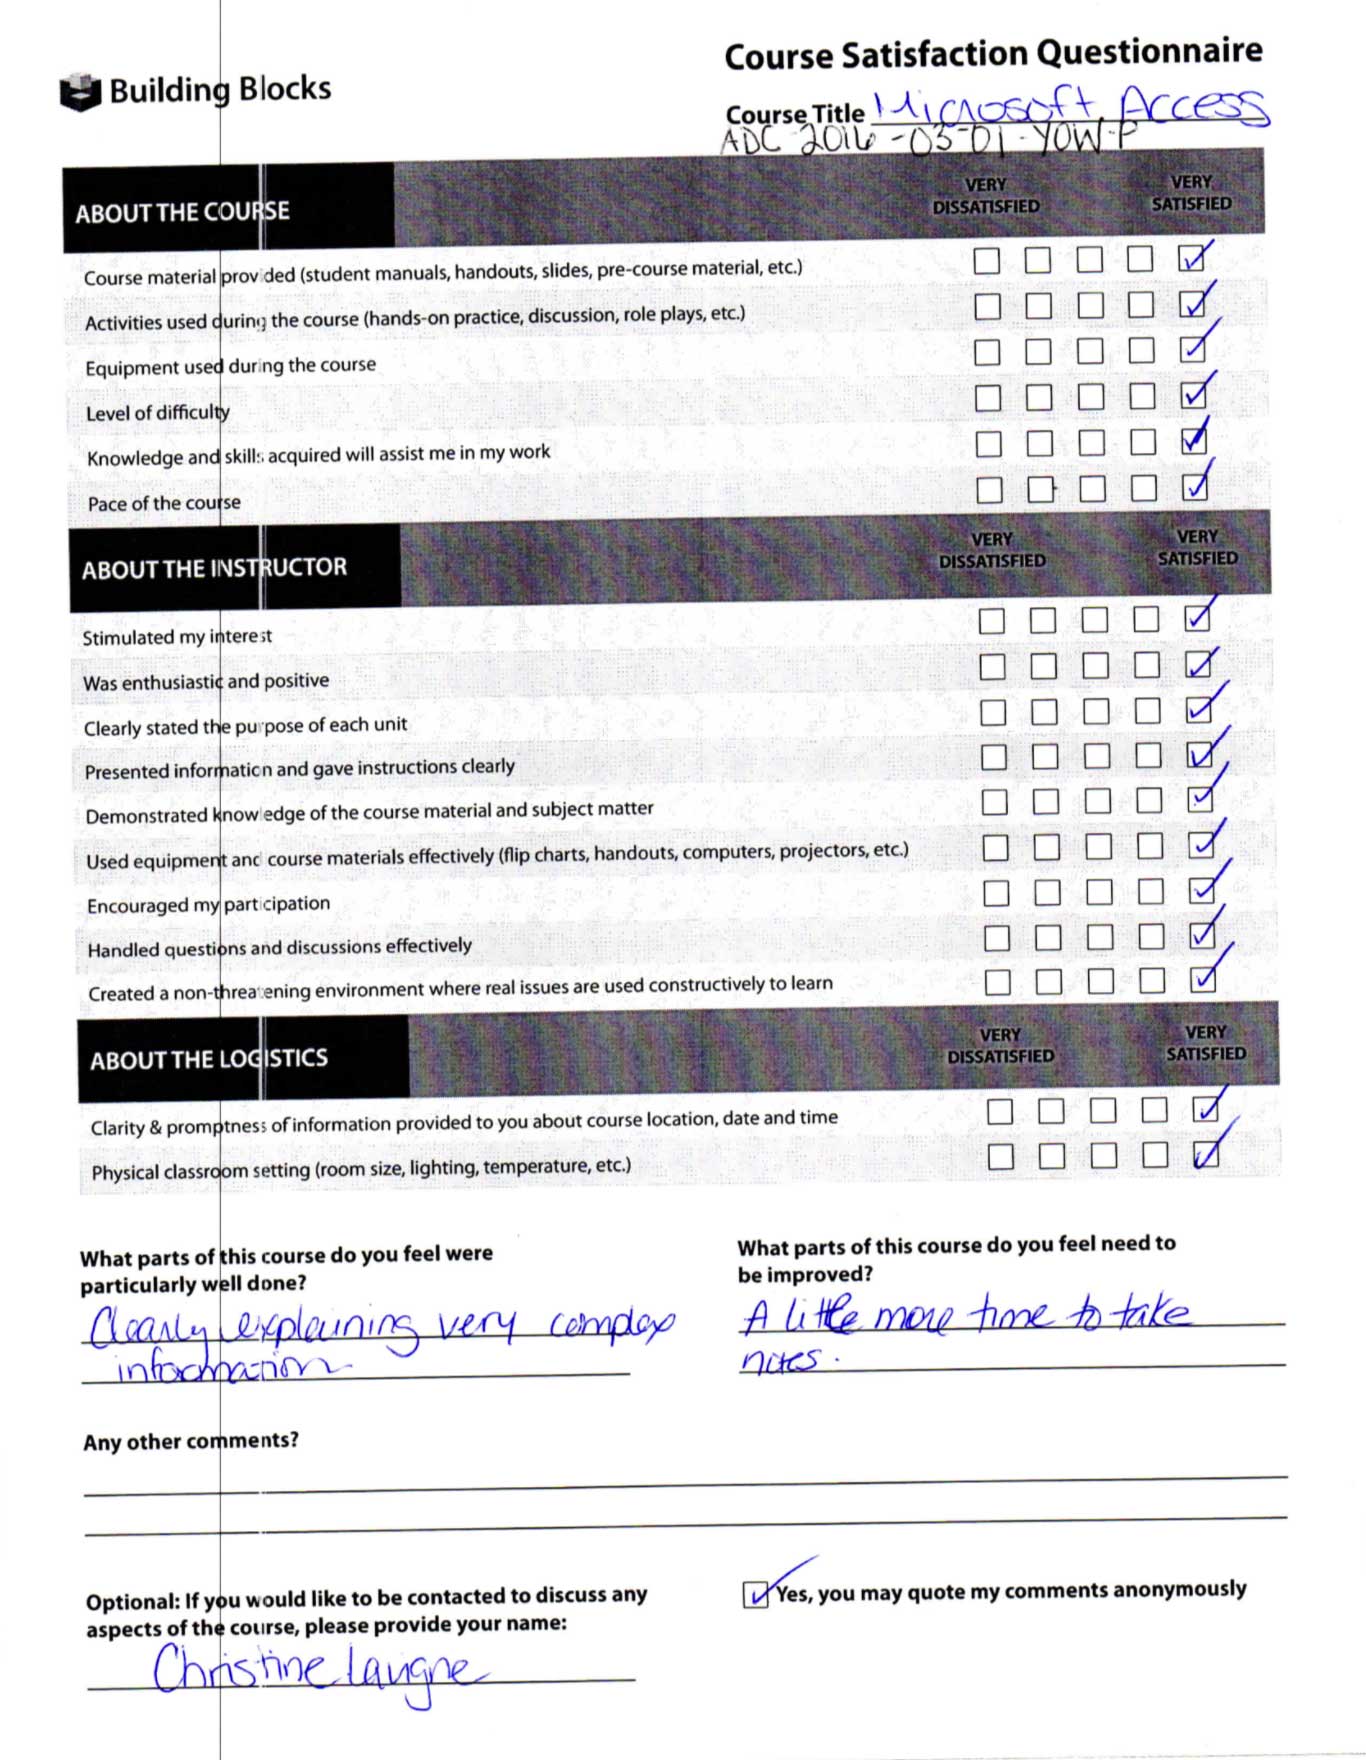 Building Blocks
Course Satisfaction Questionnaire
Course Title Microsoft Access
ADC-2016-03-01-YOW-P
ABOUT THE COURSE
VERY DISSATISFIED
VERY SATISFIED
Course material provided (student manuals, handouts, slides, pre-course material, etc.)
Activities used during the course (hands-on practice, discussion, role plays, etc.)
Equipment used during the course
Level of difficulty
Knowledge and skills acquired will assist me in my work
Pace of the course
ABOUT THE INSTRUCTOR
VERY DISSATISFIED
VERY SATISFIED
Stimulated my interest
Was enthusiastic and positive
Clearly stated the purpose of each unit
Presented information and gave instructions clearly
Demonstrated knowledge of the course material and subject matter
Used equipment and course materials effectively (flip charts, handouts, computers, projectors, etc.)
Encouraged my participation
Handled questions and discussions effectively
Created a non-threatening environment where real issues are used constructively to learn
ABOUT THE LOGISTICS
VERY DISSATISFIED
VERY SATISFIED
Clarity & promptness of information provided to you about course location, date and time
Physical classroom setting (room size, lighting, temperature, etc.)
What parts of this course do you feel were
particularly well done?
Clearly explaining very complex
information
What parts of this course do you feel need to
be improved?
A little more time to take
notes.
Any other comments?
Optional: If you would like to be contacted to discuss any
aspects of the course, please provide your name:
Christine Lavigne
Yes, you may quote my comments anonymously